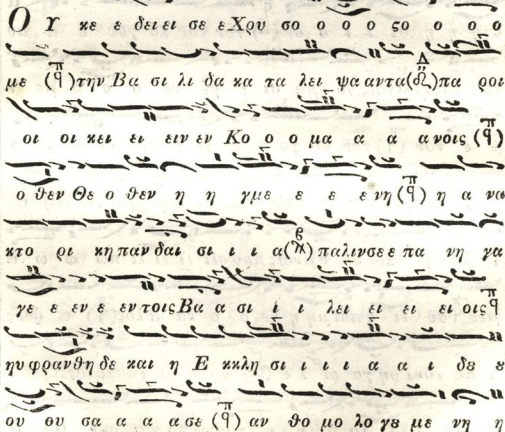 Ο Υ κε ε δει ει σε ε Χρυ σο ο ο ο ςο ο ο ο
με (π ϥ) την Βα σι λι δα κα τα λει ψα αντα (Δ) πα ροι
οι οι κει ει ειν εν Κο ο ο μα α α ανοις (π ϥ)
ο θεν Θε ο θεν η η γμε ε ε ε νη (π ϥ) η α νω
κτο ρι κη παν δαι σι ι ι α παλινσε ε πα νη γα
γε ε εν ε εν τοις Βα α σι ι ι λει ει ει ει οις π ϥ
ηυ φρανθη δε και η Ε κκλη σι ι ι ι α α ι δȣ ȣ
ου ου σα α α α σε (π ϥ) αν θο μο λο γȣ με νη η